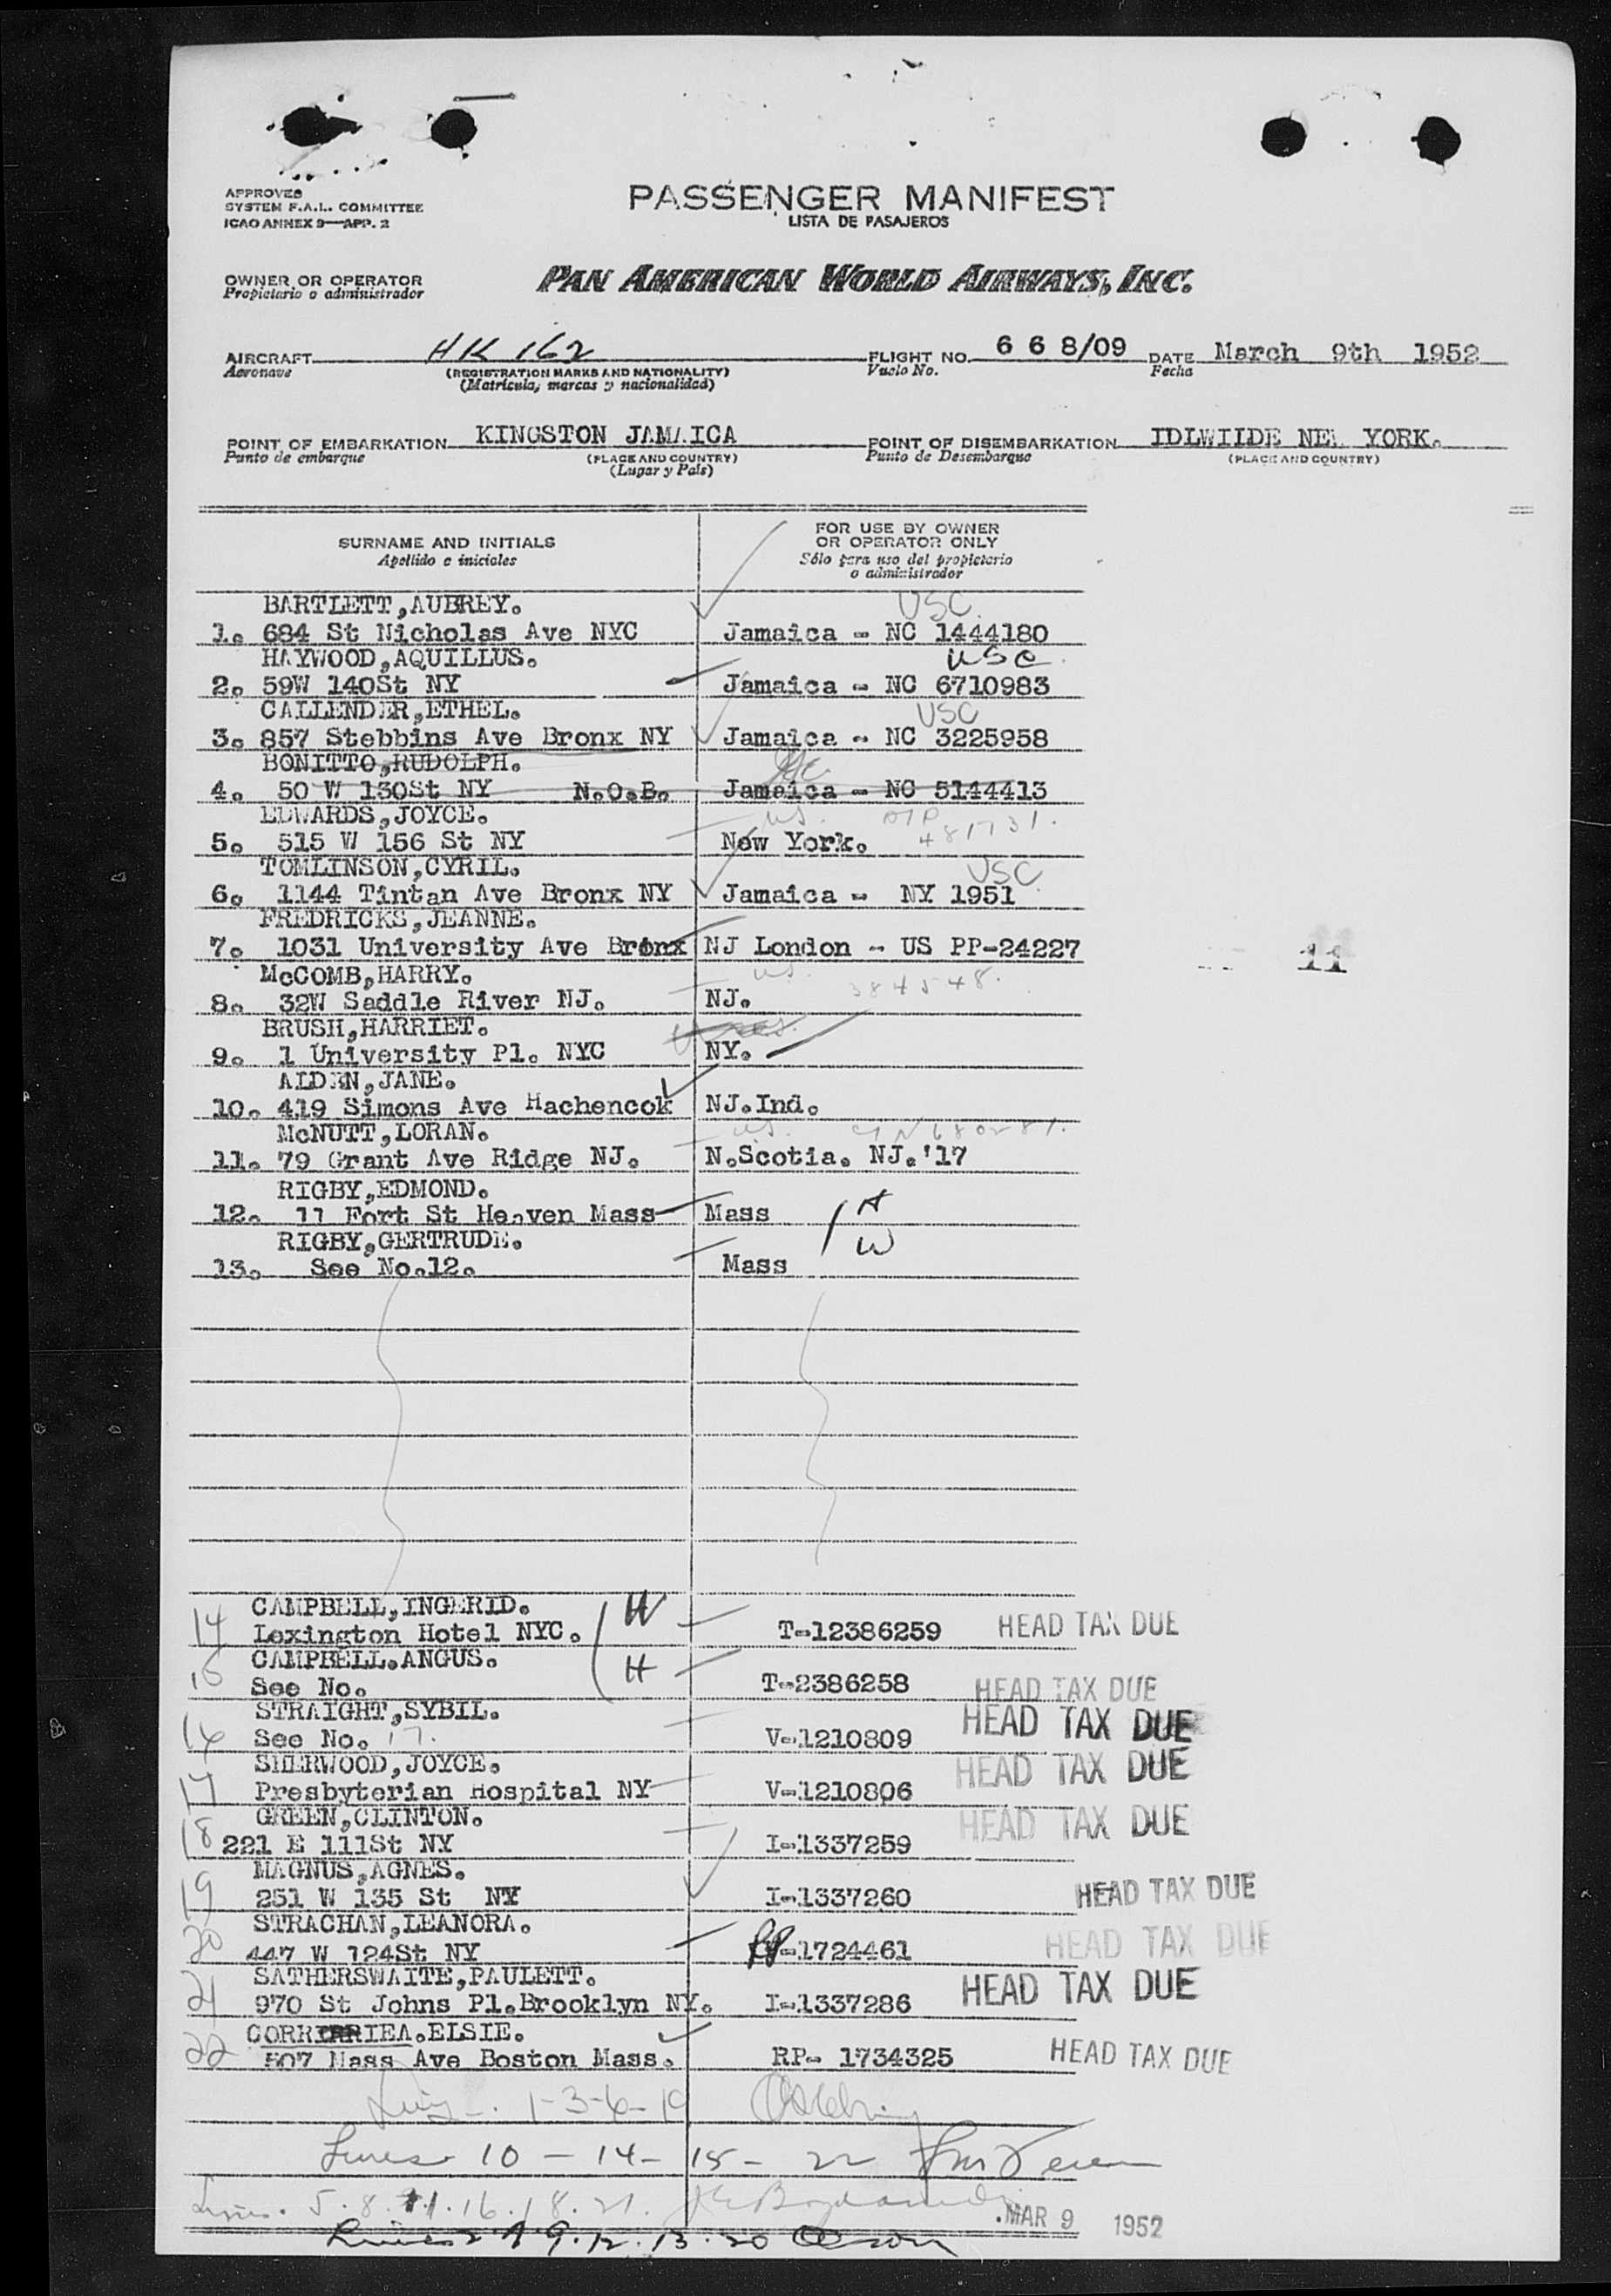 APPROVED
SYSTEM F.A.L. COMMITTEE
ICAO ANNEX 9—APP. 2
PASSENGER MANIFEST
LISTA DE PASAJEROS
OWNER OR OPERATOR
Propietario o administrador
PAN AMERICAN WORLD AIRWAYS, INC.
AIRCRAFT HK 162 FLIGHT NO. 6 6 8/09 DATE March 9th 1952
Aeronave (REGISTRATION MARKS AND NATIONALITY) Vuelo No. Fecha
(Matrícula, marcas y nacionalidad)
POINT OF EMBARKATION KINGSTON JAMAICA POINT OF DISEMBARKATION IDLWIIDE NEW YORK.
Punto de embarque (PLACE AND COUNTRY) Punto de Desembarque (PLACE AND COUNTRY)
(Lugar y País)
SURNAME AND INITIALS FOR USE BY OWNER
OR OPERATOR ONLY
Apellido e iniciales Sólo para uso del propietario
o administrador
BARTLETT,AUBREY. USC
1. 684 St Nicholas Ave NYC Jamaica - NC 1444180
HAYWOOD,AQUILLUS. USC
2. 59W 140St NY Jamaica - NC 6710983
CALLENDER,ETHEL. USC
3. 857 Stebbins Ave Bronx NY Jamaica - NC 3225958
BONITTO,RUDOLPH.
4. 50 W 130St NY N.O.B. Jamaica - NC 5144413
EDWARDS,JOYCE. US. 481731.
5. 515 W 156 St NY New York.
TOMLINSON,CYRIL. USC
6. 1144 Tintan Ave Bronx NY Jamaica - NY 1951
FREDRICKS,JEANNE.
7. 1031 University Ave Bronx NJ London - US PP-24227
11
McCOMB,HARRY. US. 384548.
8. 32W Saddle River NJ. NJ.
BRUSH,HARRIET.
9. 1 University Pl. NYC NY.
ALDEN,JANE.
10. 419 Simons Ave Hachencok NJ.Ind.
McNUTT,LORAN. US.
11. 79 Grant Ave Ridge NJ. N.Scotia. NJ.'17
RIGBY,EDMOND. H
12. 11 Fort St Heaven Mass Mass
RIGBY,GERTRUDE. W
13. See No.12. Mass
CAMPBELL,INGERID. W
14 Lexington Hotel NYC. T-12386259 HEAD TAX DUE
CAMPBELL.ANGUS. H
15 See No. T-2386258 HEAD TAX DUE
STRAIGHT,SYBIL.
16 See No. 17. V-1210809 HEAD TAX DUE
SHERWOOD,JOYCE.
17 Presbyterian Hospital NY V-1210806 HEAD TAX DUE
GREEN,CLINTON.
18 221 E 111St NY I-1337259 HEAD TAX DUE
MAGNUS,AGNES.
19 251 W 135 St NY I-1337260 HEAD TAX DUE
STRACHAN,LEANORA.
20 447 W 124St NY RP-1724461 HEAD TAX DUE
SATHERSWAITE,PAULETT.
21 970 St Johns Pl.Brooklyn NY. I-1337286 HEAD TAX DUE
CORRIEA.ELSIE.
22 507 Mass Ave Boston Mass. RP- 1734325 HEAD TAX DUE
1-3-6-19
Lines 10 - 14 - 15 - 22
5.8.11.16.18.21.
MAR 9 1952
Lines 2.7.9.12.13.20